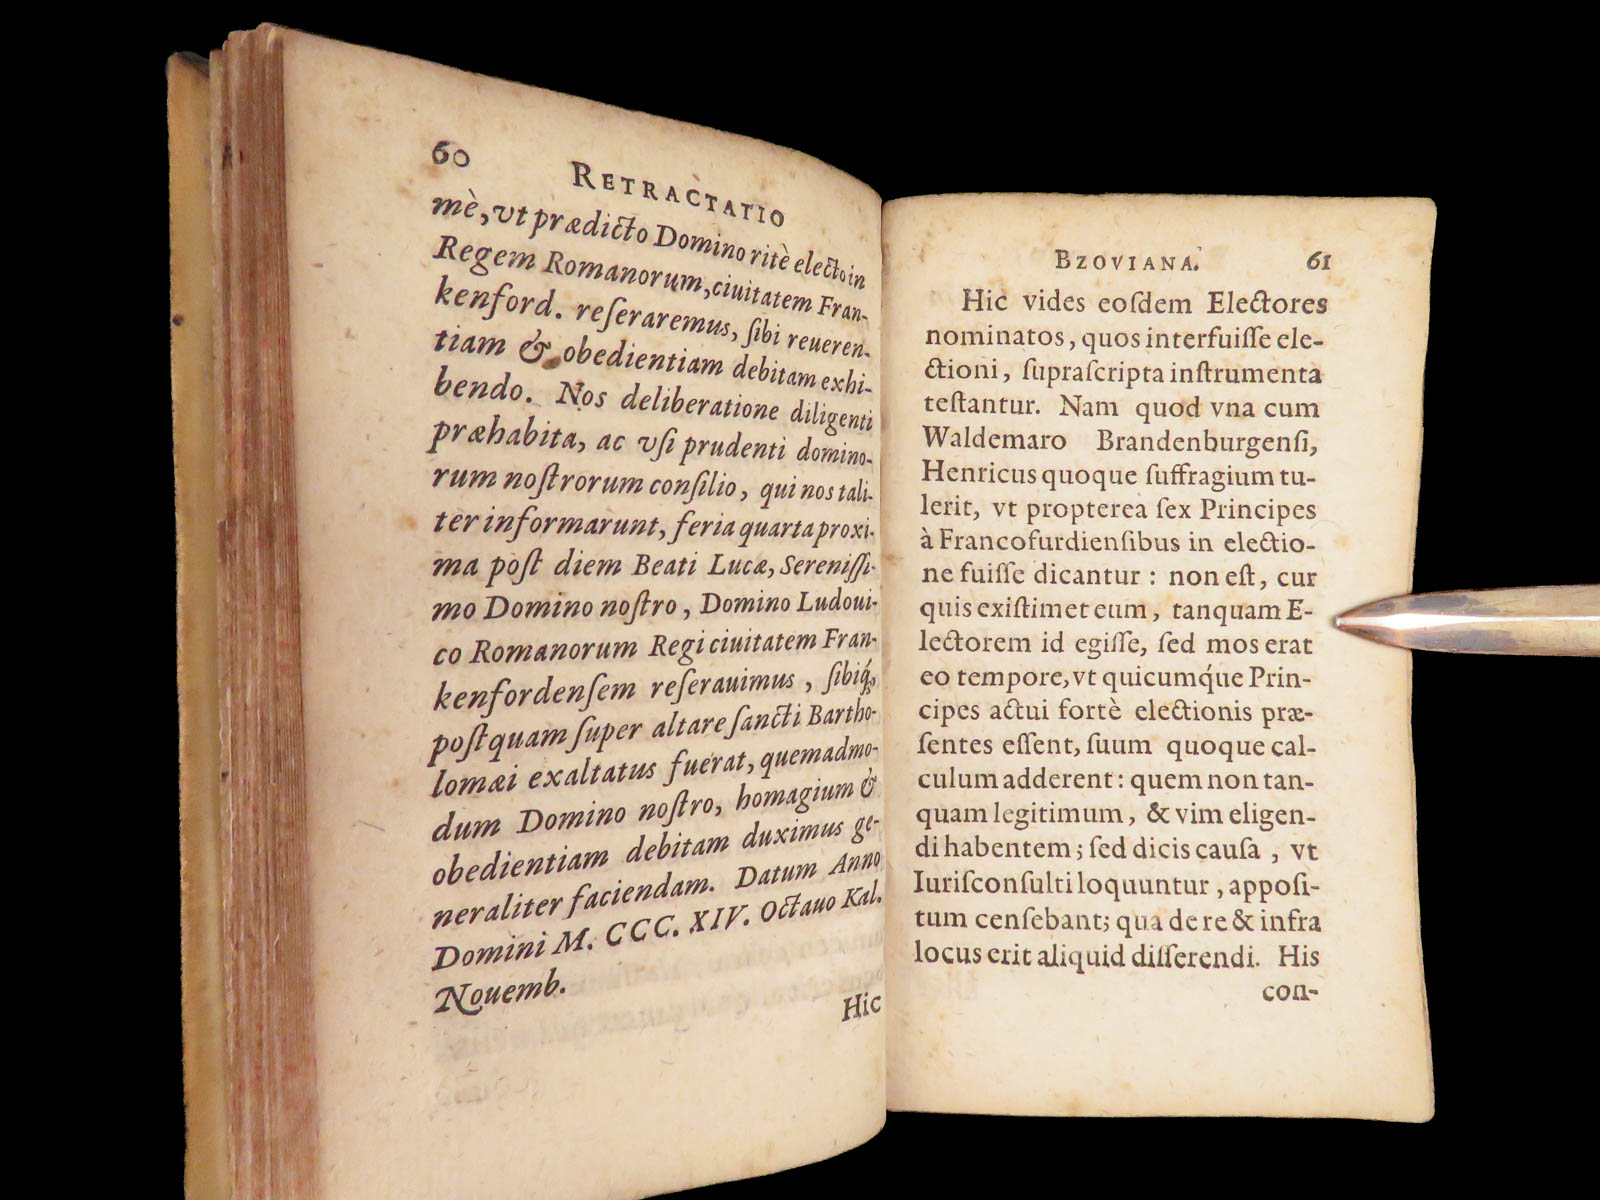 60
RETRACTATIO
mè, vt prædicto Domino ritè electo in
Regem Romanorum, ciuitatem Fran-
kenford. reſeraremus, ſibi reueren-
tiam & obedientiam debitam exhi-
bendo. Nos deliberatione diligenti
præhabita, ac vſi prudenti domino-
rum noſtrorum conſilio, qui nos tali-
ter informarunt, feria quarta proxi-
ma poſt diem Beati Lucæ, Sereniſſi-
mo Domino noſtro, Domino Ludoui-
co Romanorum Regi ciuitatem Fran-
kenfordenſem reſerauimus, ſibiq́;
poſtquam ſuper altare ſancti Bartho-
lomæi exaltatus fuerat, quemadmo-
dum Domino noſtro, homagium &
obedientiam debitam duximus ge-
neraliter faciendam. Datum Anno
Domini M. CCC. XIV. Octauo Kal.
Nouemb.
Hic
BZOVIANA.
61
Hic vides eoſdem Electores
nominatos, quos interfuiſſe ele-
ctioni, ſupraſcripta inſtrumenta
teſtantur. Nam quod vna cum
Waldemaro Brandenburgenſi,
Henricus quoque ſuffragium tu-
lerit, vt propterea ſex Principes
à Francofurdienſibus in electio-
ne fuiſſe dicantur: non eſt, cur
quis exiſtimet eum, tanquam E-
lectorem id egiſſe, ſed mos erat
eo tempore, vt quicumq́ue Prin-
cipes actui fortè electionis præ-
ſentes eſſent, ſuum quoque cal-
culum adderent: quem non tan-
quam legitimum, & vim eligen-
di habentem; ſed dicis cauſa, vt
Iuriſconſulti loquuntur, appoſi-
tum cenſebant; qua de re & infra
locus erit aliquid diſſerendi. His
con-